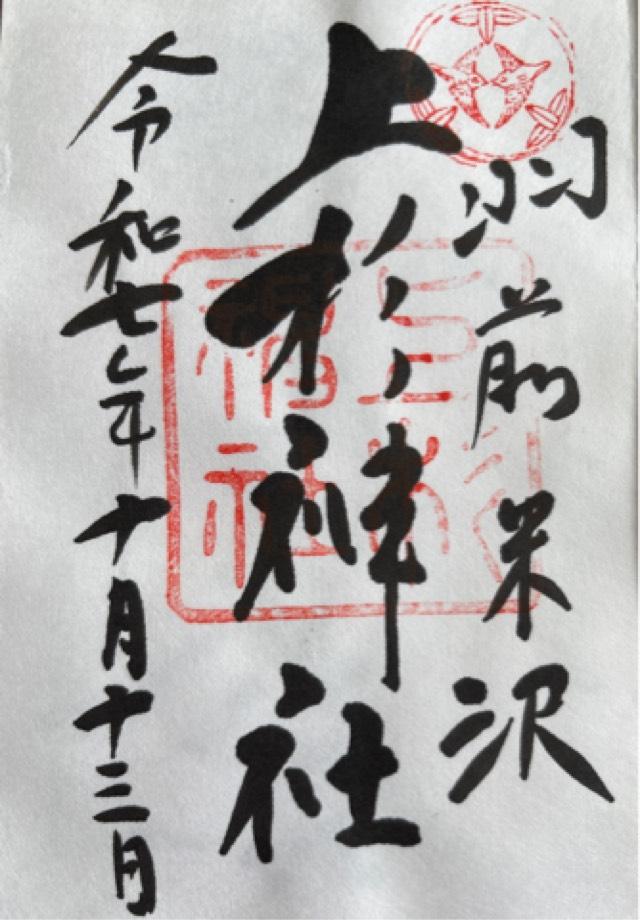 羽前米沢
上杉神社
令和七年十月十三日
上杉
神社